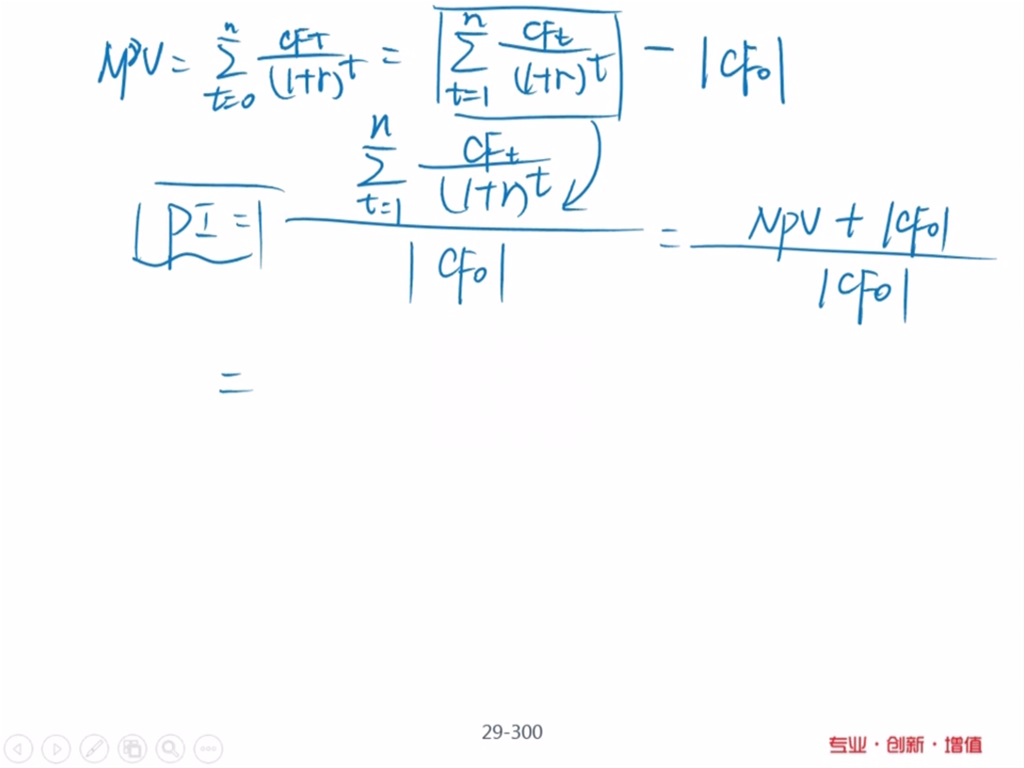 NPV = \sum_{t=0}^{n} \frac{CF_T}{(1+r)^t} = \sum_{t=1}^{n} \frac{CF_t}{(1+r)^t} - |CF_0|
PI = \frac{\sum_{t=1}^{n} \frac{CF_t}{(1+r)^t}}{|CF_0|} = \frac{NPV + |CF_0|}{|CF_0|}
=
29-300
专业·创新·增值